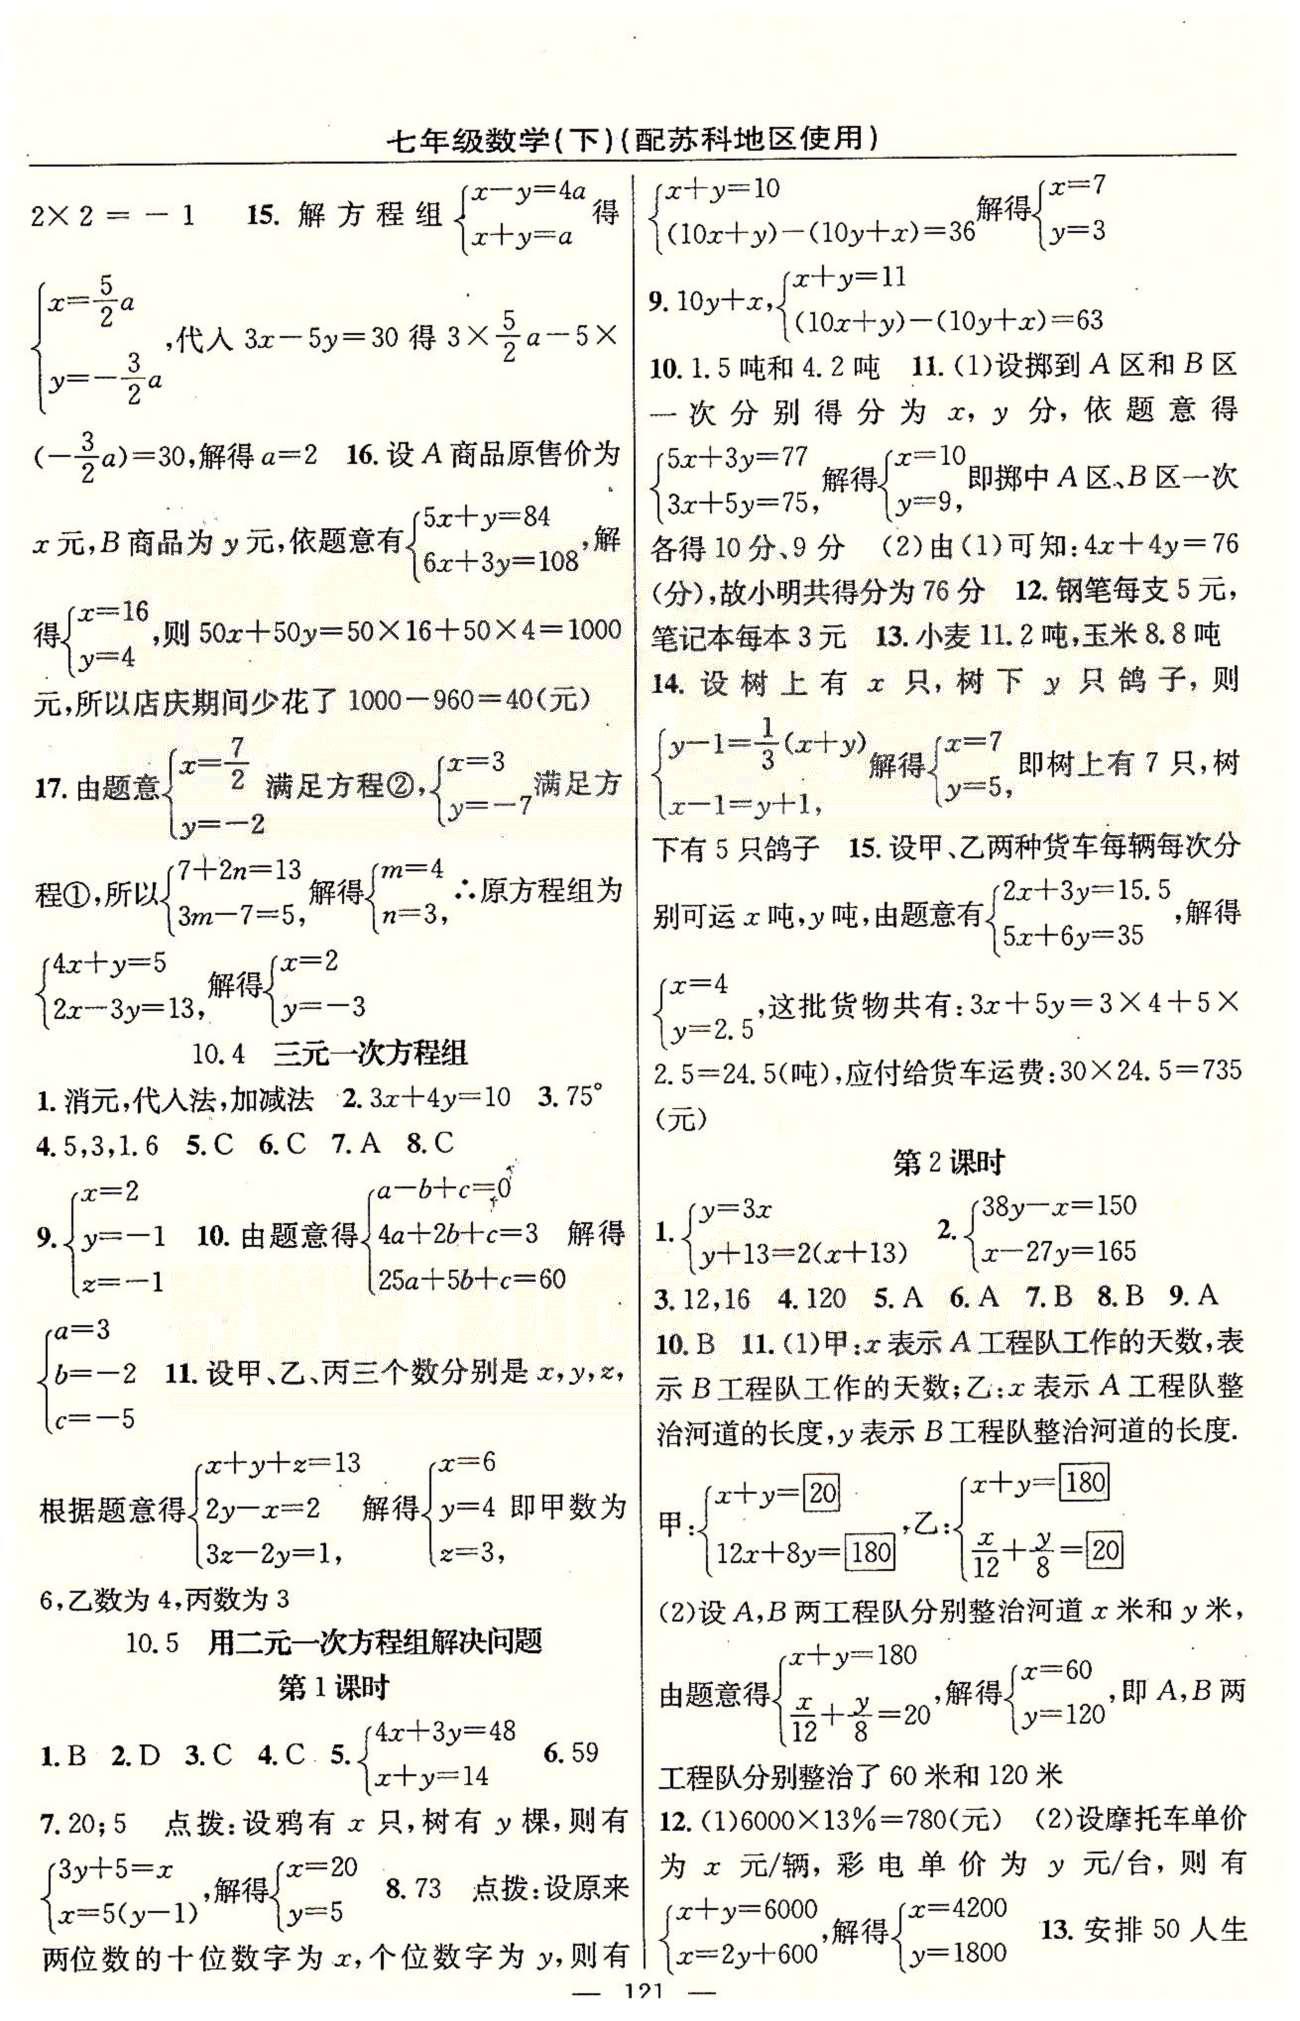 七年级数学(下)(配苏科地区使用)
2×2=-1 15. 解方程组{x-y=4a x+y=a 得
{x=5/2a y=-3/2a ,代入 3x-5y=30 得 3×5/2a-5×
(-3/2a)=30,解得 a=2 16. 设 A 商品原售价为
x 元,B 商品为 y 元,依题意有{5x+y=84 6x+3y=108 ,解
得{x=16 y=4 ,则 50x+50y=50×16+50×4=1000
元,所以店庆期间少花了 1000-960=40(元)
17. 由题意{x=7/2 y=-2 满足方程②,{x=3 y=-7 满足方
程①,所以{7+2n=13 3m-7=5, 解得{m=4 n=3, ∴原方程组为
{4x+y=5 2x-3y=13, 解得{x=2 y=-3
10.4 三元一次方程组
1. 消元,代入法,加减法 2. 3x+4y=10 3. 75°
4. 5,3,1.6 5. C 6. C 7. A 8. C
9. {x=2 y=-1 z=-1 10. 由题意得{a-b+c=0 4a+2b+c=3 25a+5b+c=60 解得
{a=3 b=-2 c=-5 11. 设甲、乙、丙三个数分别是 x,y,z,
根据题意得{x+y+z=13 2y-x=2 3z-2y=1, 解得{x=6 y=4 z=3, 即甲数为
6,乙数为 4,丙数为 3
10.5 用二元一次方程组解决问题
第 1 课时
1. B 2. D 3. C 4. C 5. {4x+3y=48 x+y=14 6. 59
7. 20;5 点拨:设鸦有 x 只,树有 y 棵,则有
{3y+5=x x=5(y-1) ,解得{x=20 y=5 8. 73 点拨:设原来
两位数的十位数字为 x,个位数字为 y,则有
{x+y=10 (10x+y)-(10y+x)=36 解得{x=7 y=3
9. 10y+x,{x+y=11 (10x+y)-(10y+x)=63
10. 1.5 吨和 4.2 吨 11. (1)设掷到 A 区和 B 区
一次分别得分为 x,y 分,依题意得
{5x+3y=77 3x+5y=75, 解得{x=10 y=9, 即掷中 A 区、B 区一次
各得 10 分、9 分 (2)由(1)可知:4x+4y=76
(分),故小明共得分为 76 分 12. 钢笔每支 5 元,
笔记本每本 3 元 13. 小麦 11.2 吨,玉米 8.8 吨
14. 设树上有 x 只,树下 y 只鸽子,则
{y-1=1/3(x+y) x-1=y+1, 解得{x=7 y=5, 即树上有 7 只,树
下有 5 只鸽子 15. 设甲、乙两种货车每辆每次分
别可运 x 吨,y 吨,由题意有{2x+3y=15.5 5x+6y=35 ,解得
{x=4 y=2.5 ,这批货物共有:3x+5y=3×4+5×
2.5=24.5(吨),应付给货车运费:30×24.5=735
(元)
第 2 课时
1. {y=3x y+13=2(x+13) 2. {38y-x=150 x-27y=165
3. 12,16 4. 120 5. A 6. A 7. B 8. B 9. A
10. B 11. (1)甲:x 表示 A 工程队工作的天数,表
示 B 工程队工作的天数;乙:x 表示 A 工程队整
治河道的长度,y 表示 B 工程队整治河道的长度.
甲:{x+y=20 12x+8y=180 ,乙:{x+y=180 x/12+y/8=20
(2)设 A,B 两工程队分别整治河道 x 米和 y 米,
由题意得{x+y=180 x/12+y/8=20 ,解得{x=60 y=120 ,即 A,B 两
工程队分别整治了 60 米和 120 米
12. (1)6000×13%=780(元) (2)设摩托车单价
为 x 元/辆,彩电单价为 y 元/台,则有
{x+y=6000 x=2y+600 ,解得{x=4200 y=1800 13. 安排 50 人生
— 121 —